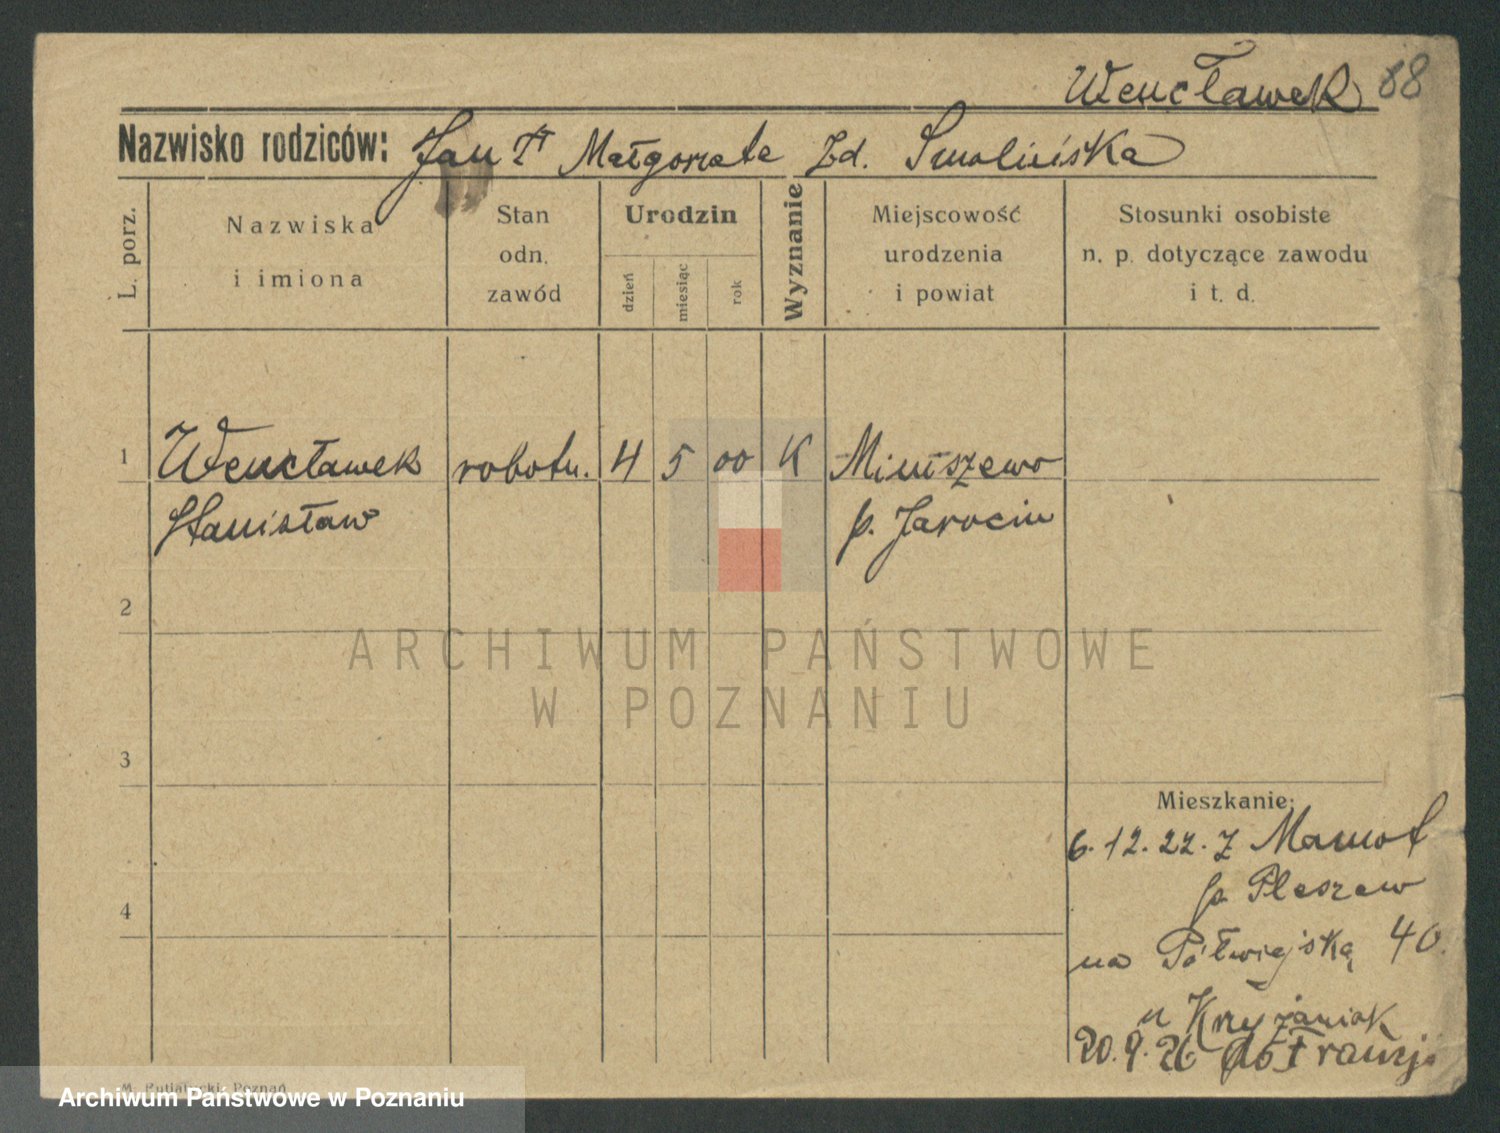 Wencławek 88
Nazwisko rodziców: Jan i Małgorzata Zd. Smolińska
L. porz.
Nazwiska
i imiona
Stan
odn.
zawód
Urodzin
dzień
miesiąc
rok
Wyznanie
Miejscowość
urodzenia
i powiat
Stosunki osobiste
n. p. dotyczące zawodu
i t. d.
1 Wencławek robotn. 4 5 00 K Miniszewo
Stanisław p. Jarocin
2
3
4
Mieszkanie:
6.12.22. z Mamot
p. Pleszew
na Półwiejską 40.
u Krzyżaniak
20.9.26 do Francji
M. Putiatycki, Poznań
ARCHIWUM PAŃSTWOWE
W POZNANIU
Archiwum Państwowe w Poznaniu